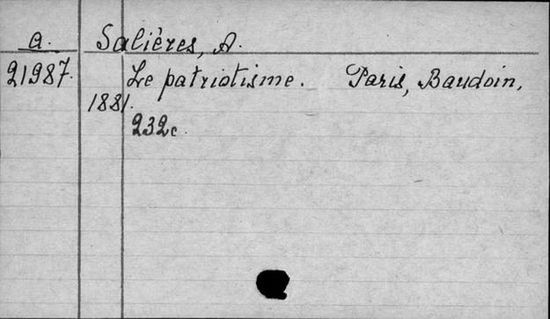 a. Salières, A.
21987. Le patriotisme. Paris, Baudoin,
1881.
232c.